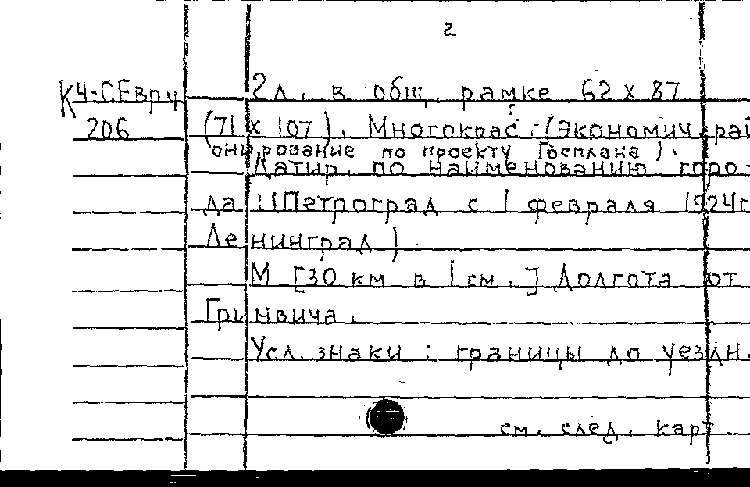 2
К4-СЕвр.ч 2 л. в общ. рамке 62 х 87
206 (71 х 107). Многокрас. (Экономич. рай
онирование по проекту Госплана).
Датир. по наименованию горо-
да (Петроград с 1 февраля 1924г
Ленинград)
М [30 км в 1 см.] Долгота от
Гринвича.
Усл. знаки: границы до уездн.
см. след. карт.